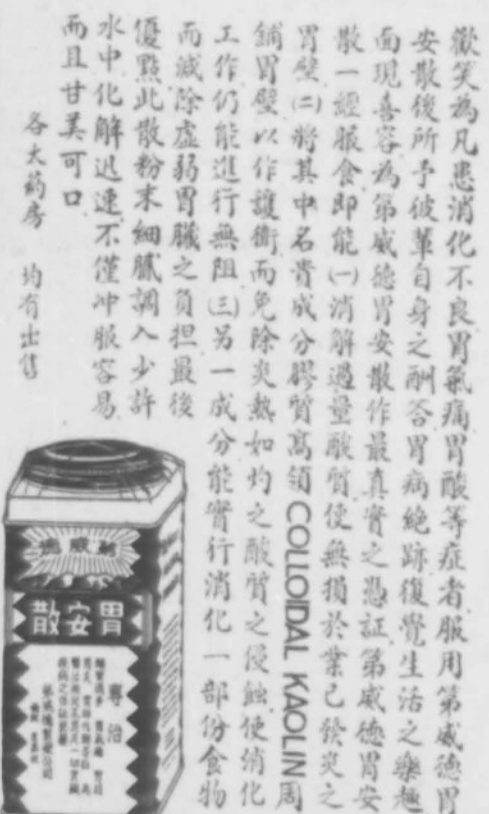 歡笑為凡患消化不良胃氣痛胃酸等症者服用第威德胃
安散後所予彼輩自身之酬答胃病絕跡復覺生活之樂趣
面現喜容為第威德胃安散作最真實之憑証第威德胃安
散一經服食即能㈠消解過量酸質使無損於業已發炎之
胃壁㈡將其中名貴成分膠質高領COLLOIDAL KAOLIN周
鋪胃壁以作護衛而免除炎熱如灼之酸質之侵蝕使消化
工作仍能進行無阻㈢另一成分能實行消化一部份食物
而減除虛弱胃臟之負担最後
優點此散粉末細膩調入少許
水中化解迅速不僅冲服容易
而且甘美可口
各大葯房 均有出售
第威德
胃安散
專治